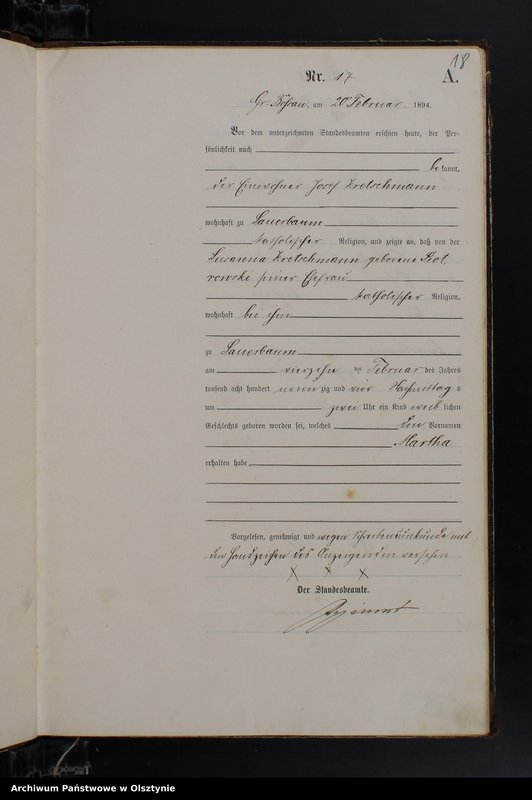 18
Nr. 17. A.
Gr. Kösrau, am 20 Februar 1894
Vor dem unterzeichneten Standesbeamten erschien heute, der Per-
sönlichkeit nach
bekannt,
der Einwohner Josef Kretschmann
wohnhaft zu Lauerbaum
katholischer Religion, und zeigte an, daß von der
Susanna Kretschmann geborene Piot
rowski seiner Ehefrau
katholischer Religion,
wohnhaft bei ihm
zu Lauerbaum
am vierzehn ten Februar des Jahres
tausend acht hundert neun zig und vier Nachmittag s
um zwei Uhr ein Kind weib lichen
Geschlechts geboren worden sei, welches den Vornamen
Martha
erhalten habe
Vorgelesen, genehmigt und wegen Schreibensunkunde mit
den Handzeichen des Anzeigenden versehen
X X X
Der Standesbeamte.
Archiwum Państwowe w Olsztynie